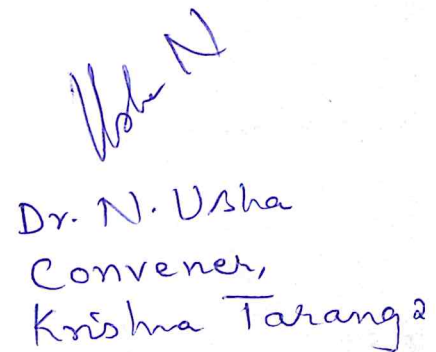 Usha N
Dr. N. Usha
Convener,
Krishna Taranga